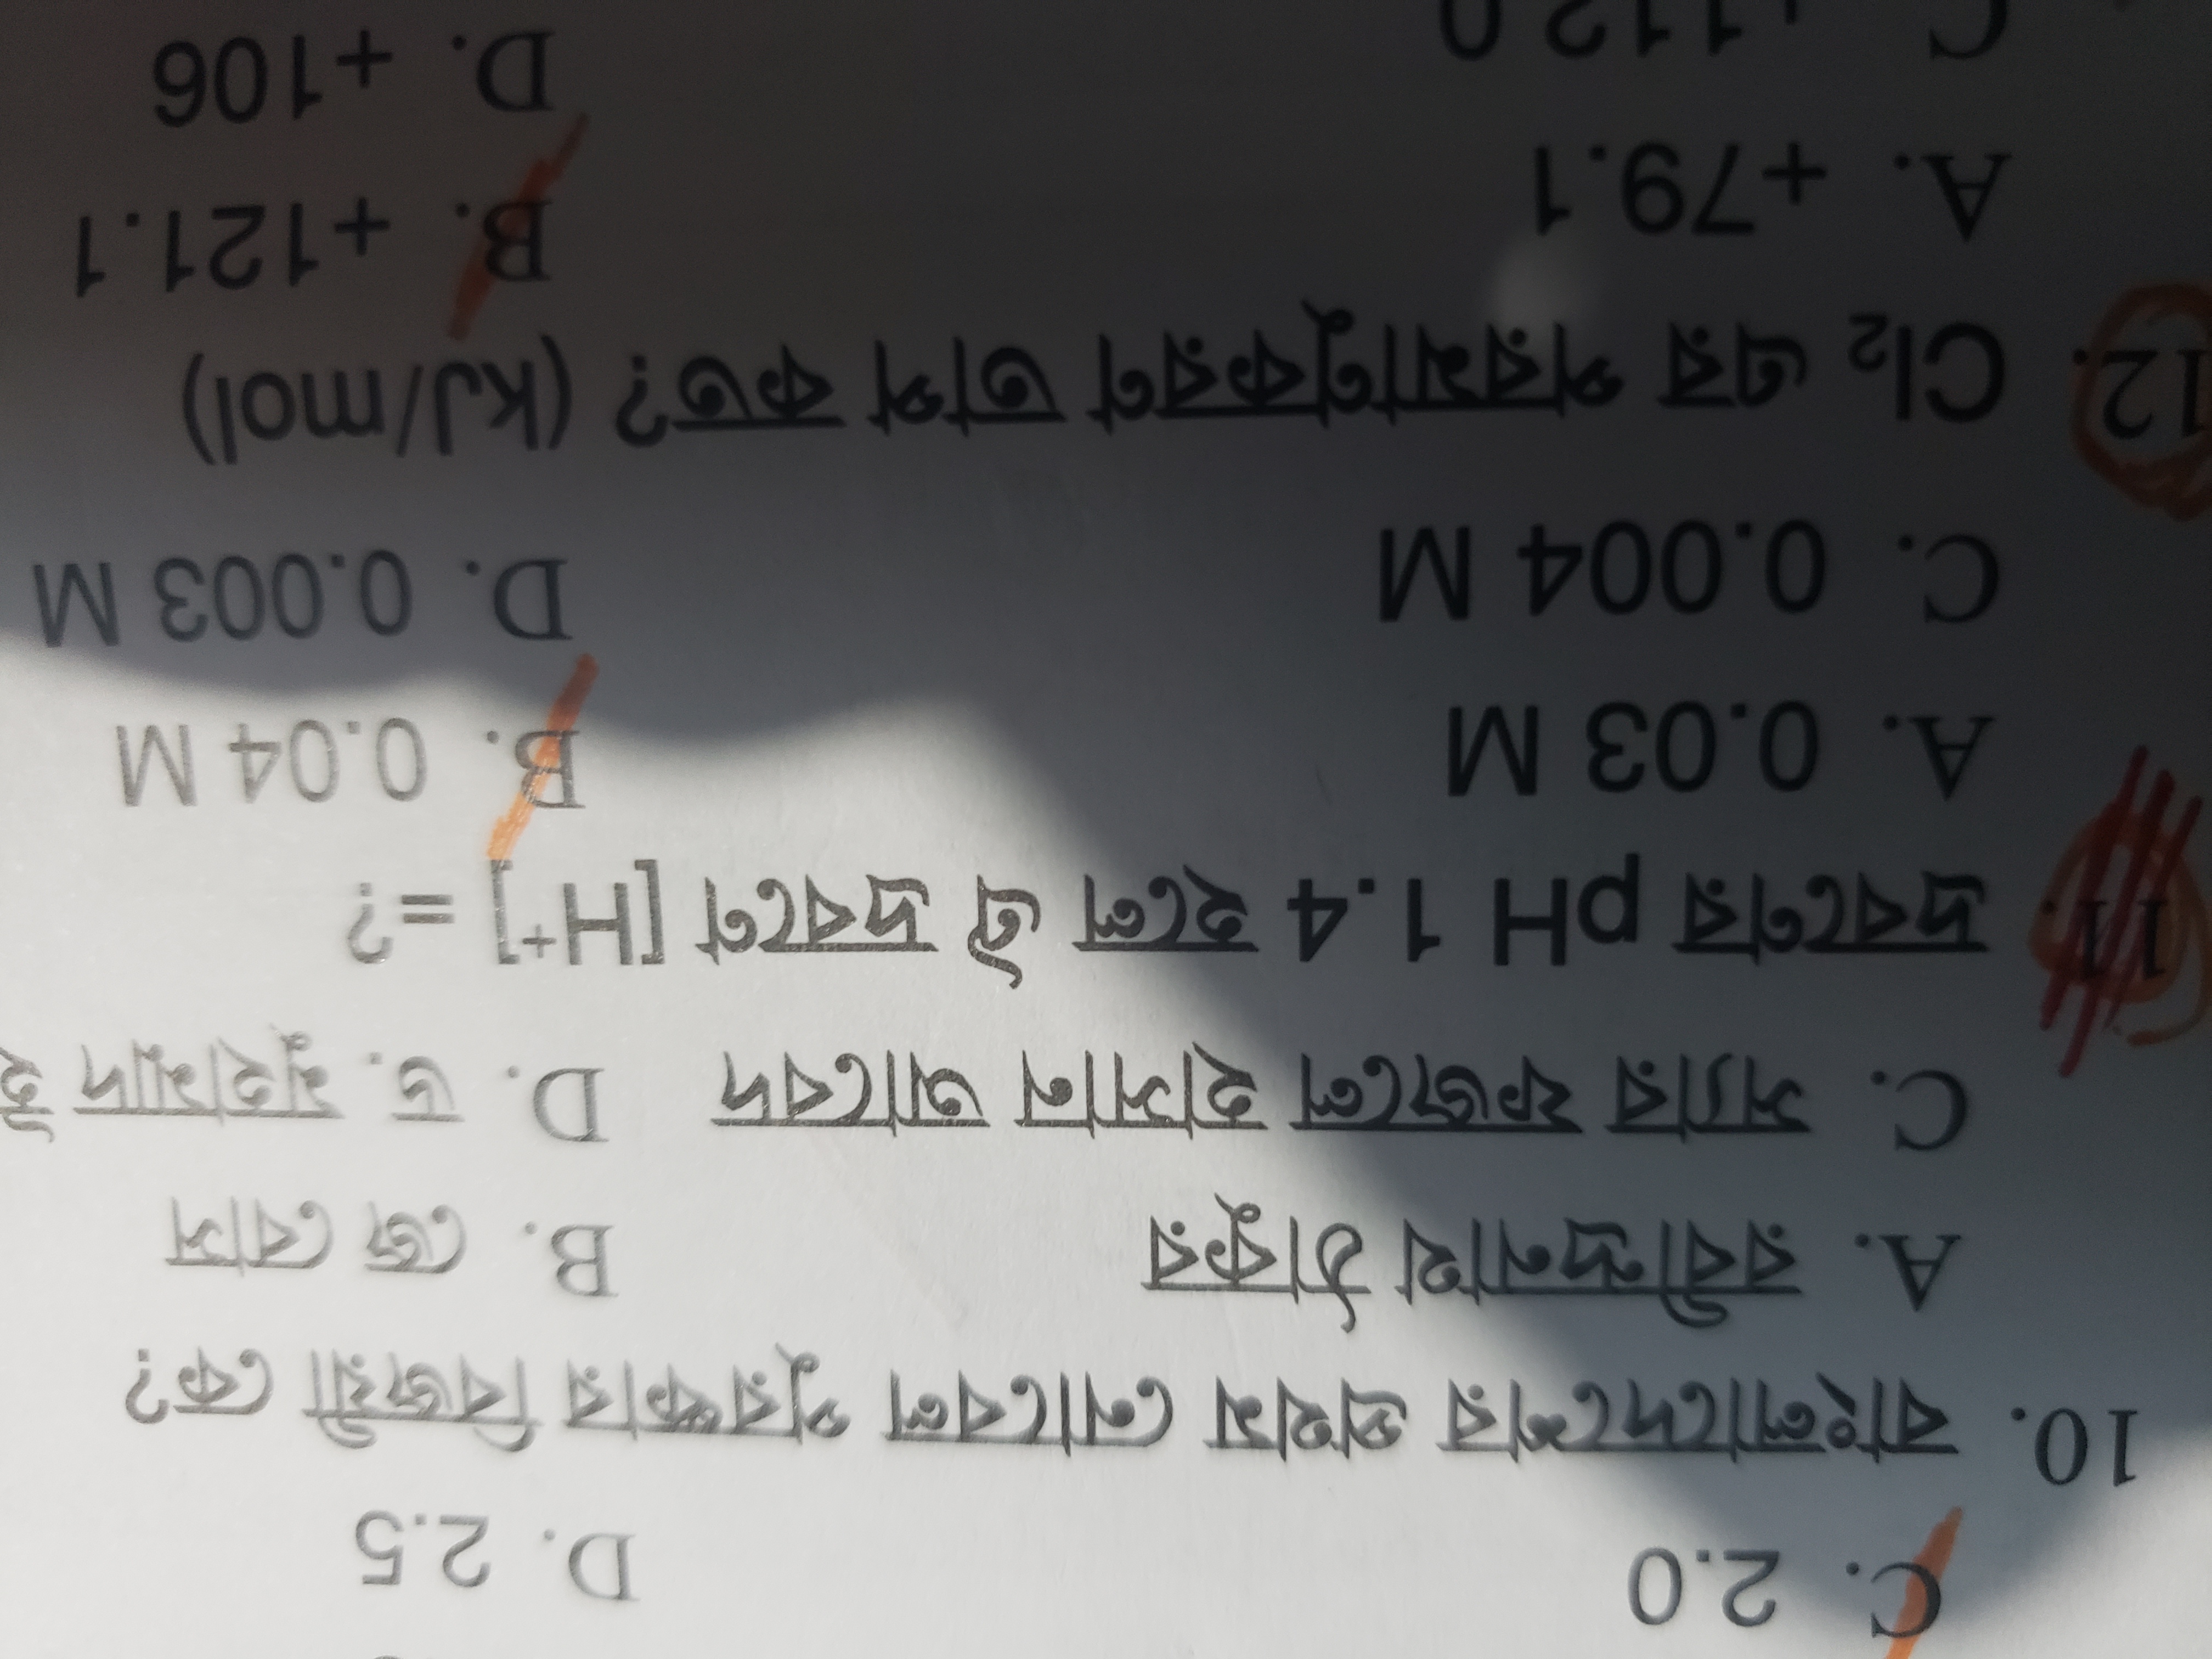 C. 2.0 D. 2.5
10. বাংলাদেশের প্রথম নোবেল পুরস্কার বিজয়ী কে?
A. রবীন্দ্রনাথ ঠাকুর B. জে বোস
C. স্যার ফজলে হাসান আবেদ D. ড. মুহাম্মাদ
11. দ্রবণের pH 1.4 হলে ঐ দ্রবণে [H⁺] =?
A. 0.03 M B. 0.04 M
C. 0.004 M D. 0.003 M
12. Cl₂ এর পরমাণুকরণ তাপ কত? (kJ/mol)
A. +79.1 B. +121.1
C. D. +106